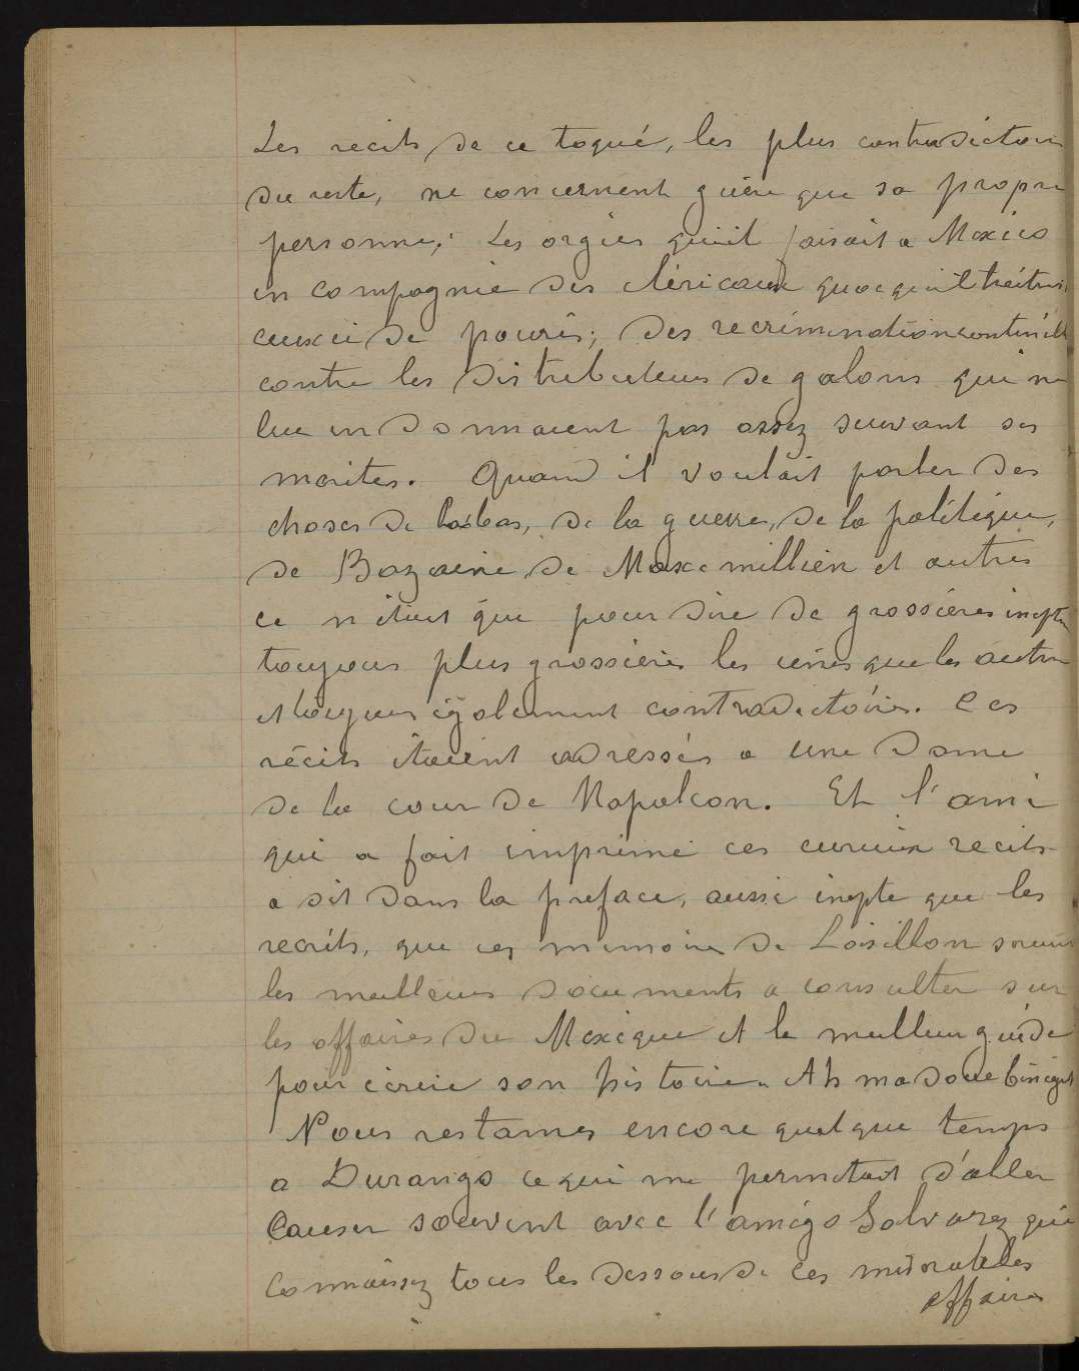 Les recits de ce toqué, les plus contradictoires
du reste, ne concernent guère que sa propre
personne; Les orgies qu'il faisait a Mexico
en compagnie des cléricaux quoequ'il traitais
ceux ci de pouris; des recriminations continuelles
contre les distributeurs de galons qui ne
lui en donnaient pas assez suivant ses
merites. Quand il voulait parler des
choses de labas, de la guerre, de la politique,
de Bazaine, de Maxemillien et autres
ce n'était que pour dire de grossières inepties
toujours plus grossières les unes que les autres
et toujours également contradictoires. Ces
récits étaient adressés a une Dame
de la cour de Napoleon. Et l'ami
qui a fait imprimé ces curieux recits
a dit dans la preface, aussi inepte que les
recits, que ces memoires de Loisillon seraient
les meilleurs documents a consulter sur
les affaires du Mexique et le meilleur guide
pour écrire son histoire. Ah ma Doue beniguet
Nous restames encore quelque temps
a Durango ce qui me permetait d'aller
Causer souvent avec l'amigo Salvarez qui
Connaissez tous les dessous de ces misérables
affaires